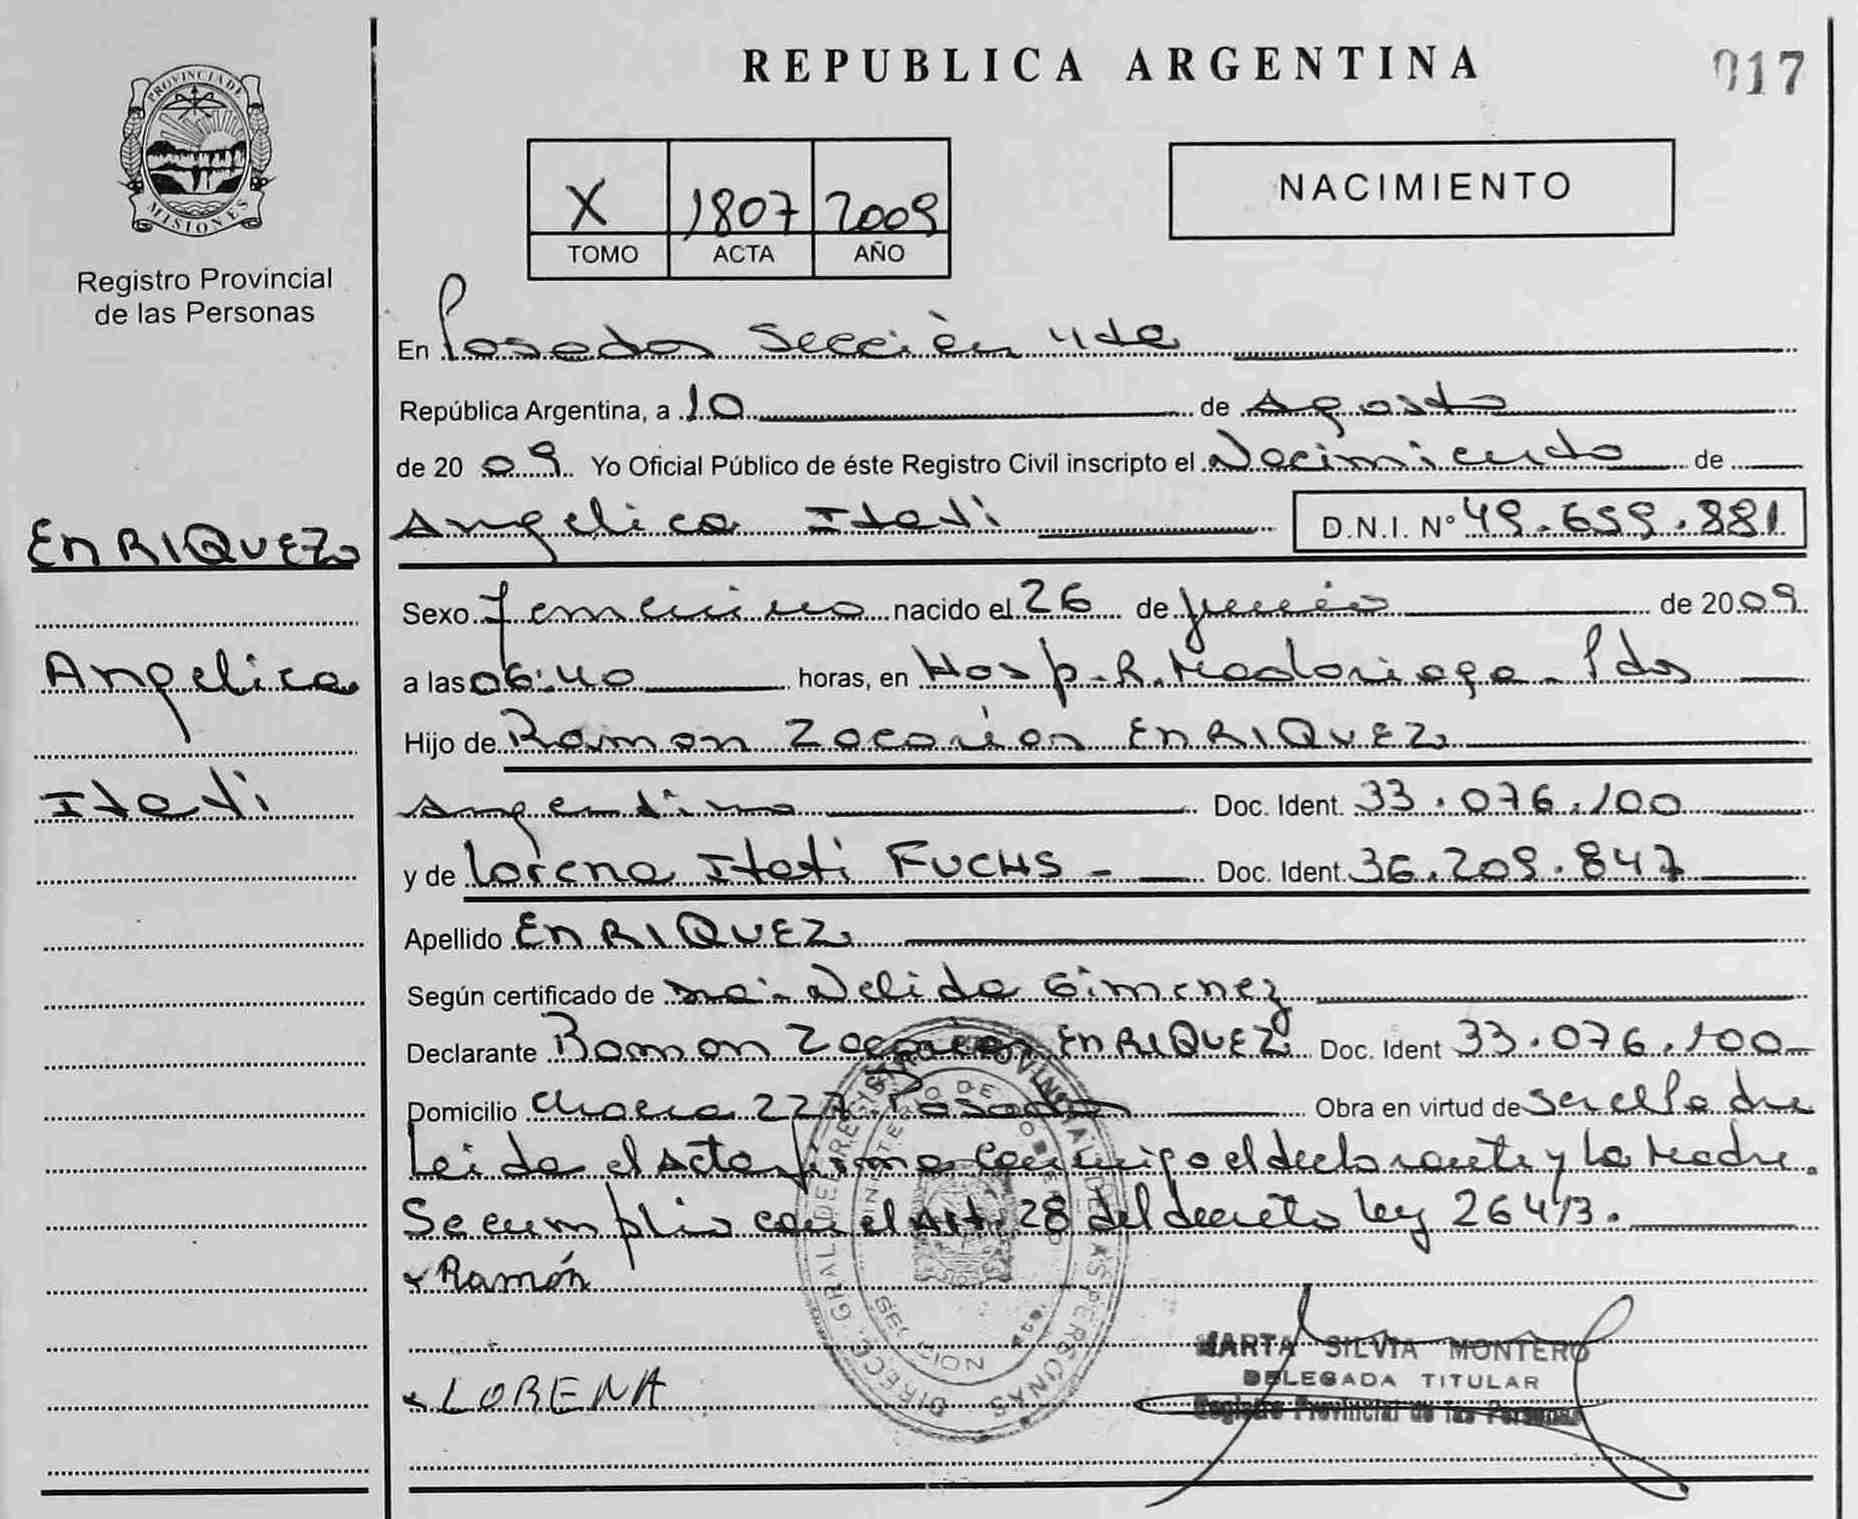 REPUBLICA ARGENTINA
017
PROVINCIA DE
MISIONES
Registro Provincial
de las Personas
X 1807 2009
TOMO ACTA AÑO
NACIMIENTO
En Posadas Sección 4ta
República Argentina, a 10 de Agosto
de 20 09 Yo Oficial Público de éste Registro Civil inscripto el Nacimiento de
Angelica Itati D.N.I. Nº 49.659.881
ENRIQUEZ
Angelica
Itati
Sexo femenino nacido el 26 de de 2009
a las 06:40 horas, en Hosp. R. Madariaga - Pdas
Hijo de Ramon Zacarias ENRIQUEZ
Argentino Doc. Ident. 33.076.100
y de Lorena Itati FUCHS - Doc. Ident. 36.209.847
Apellido ENRIQUEZ
Según certificado de Nelida Gimenez
Declarante Ramon Zacarias ENRIQUEZ Doc. Ident 33.076.100
Domicilio Chacra 227 Posadas Obra en virtud de ser el Padre
Leida el Acta firma conmigo el declarante y la Madre.
Se cumplio con el Art. 28 del decreto ley 26413.
Ramón
LORENA
DIRECC. GRAL DE REGISTRO PROVINCIAL DE LAS PERSONAS
MINISTERIO DE GOBIERNO
SECCION 4ta.
MARTA SILVIA MONTERO
DELEGADA TITULAR
Registro Provincial de las Personas